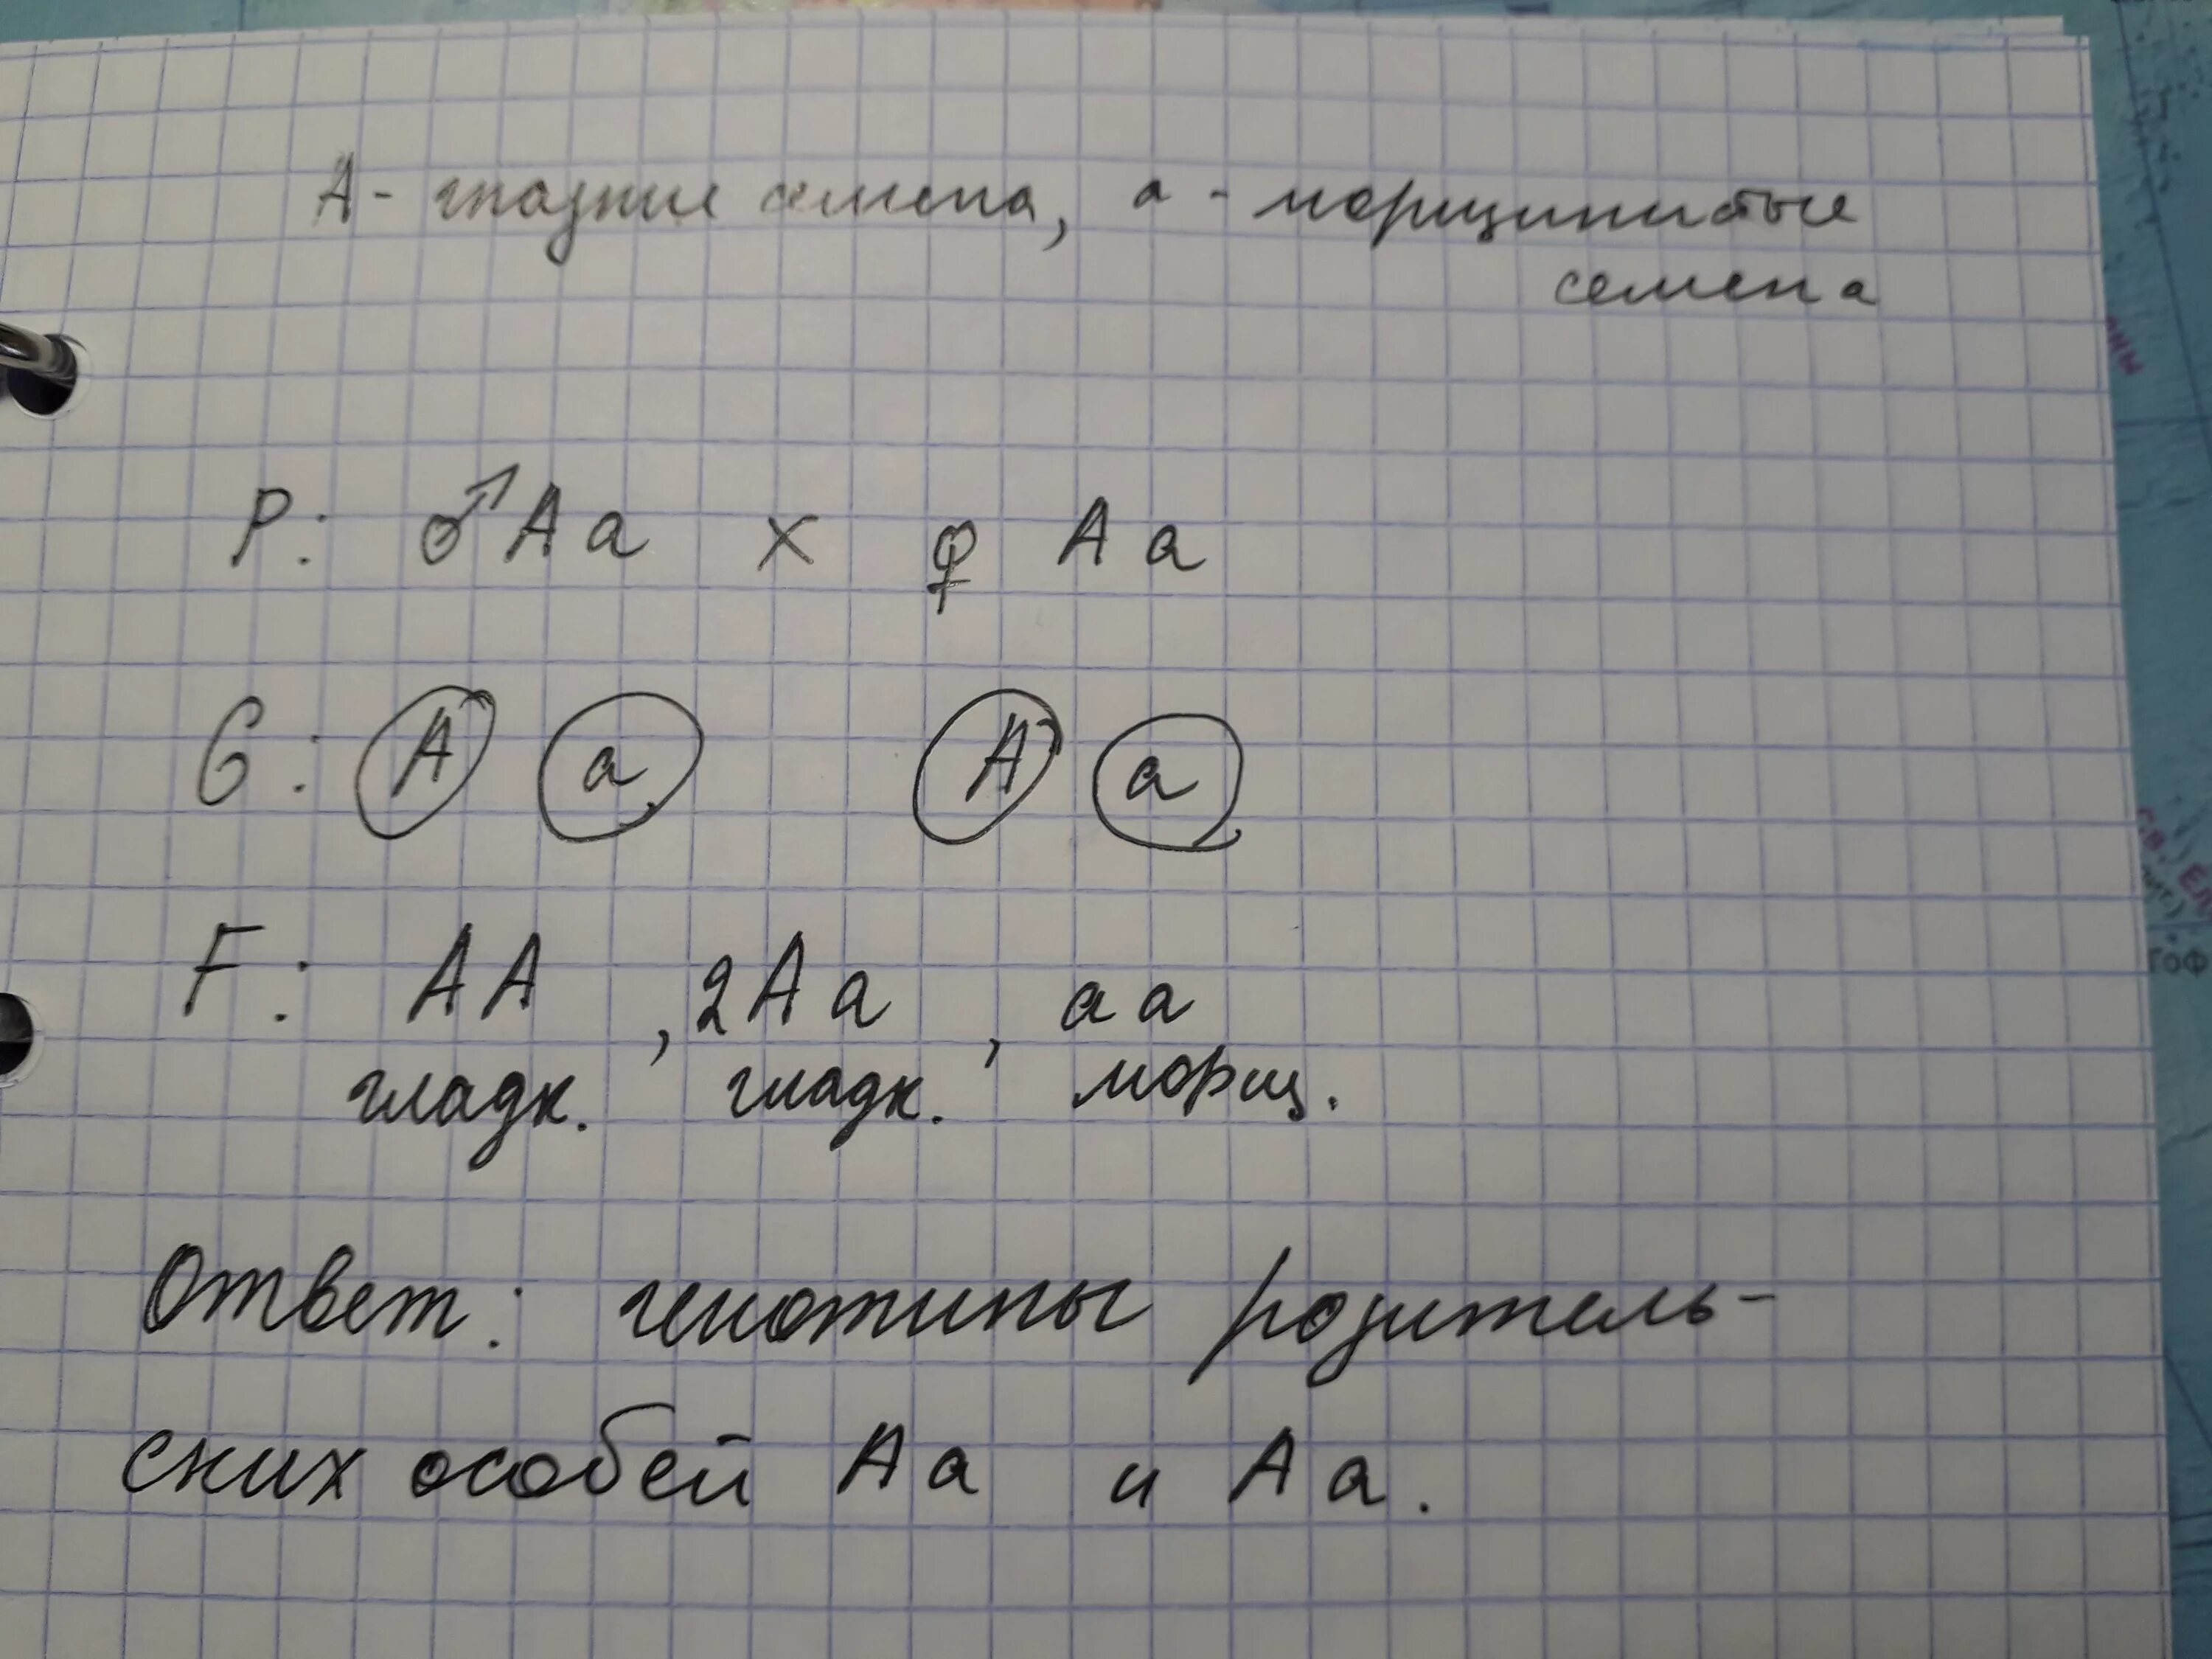 А - гладкие семена, а - морщинистые
семена
P: ♂ Aa × ♀ Aa
G: A a A a
F: AA , 2Aa , aa
гладк. гладк. морщ.
Ответ: генотипы родитель-
ских особей Аа и Аа.